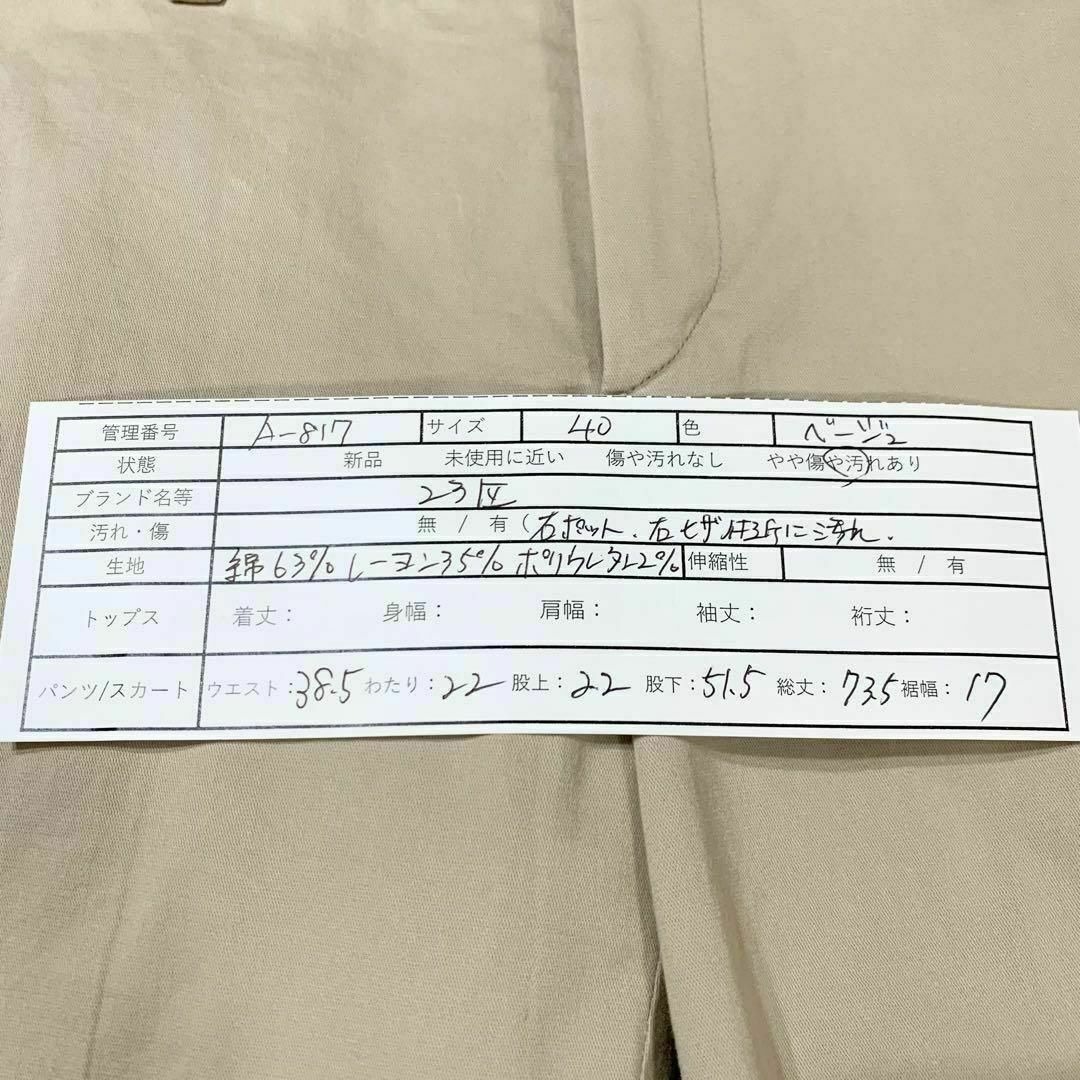 管理番号 A-817 サイズ 40 色 ベージュ
状態 新品 未使用に近い 傷や汚れなし やや傷や汚れあり
ブランド名等 23区
汚れ・傷 無 / 有 (右ポケット、右ヒザ付近に汚れ.
生地 綿63% レーヨン35% ポリウレタン2% 伸縮性 無 / 有
トップス 着丈： 身幅： 肩幅： 袖丈： 裄丈：
パンツ/スカート ウエスト：38.5 わたり：22 股上：22 股下：51.5 総丈：73.5 裾幅：17